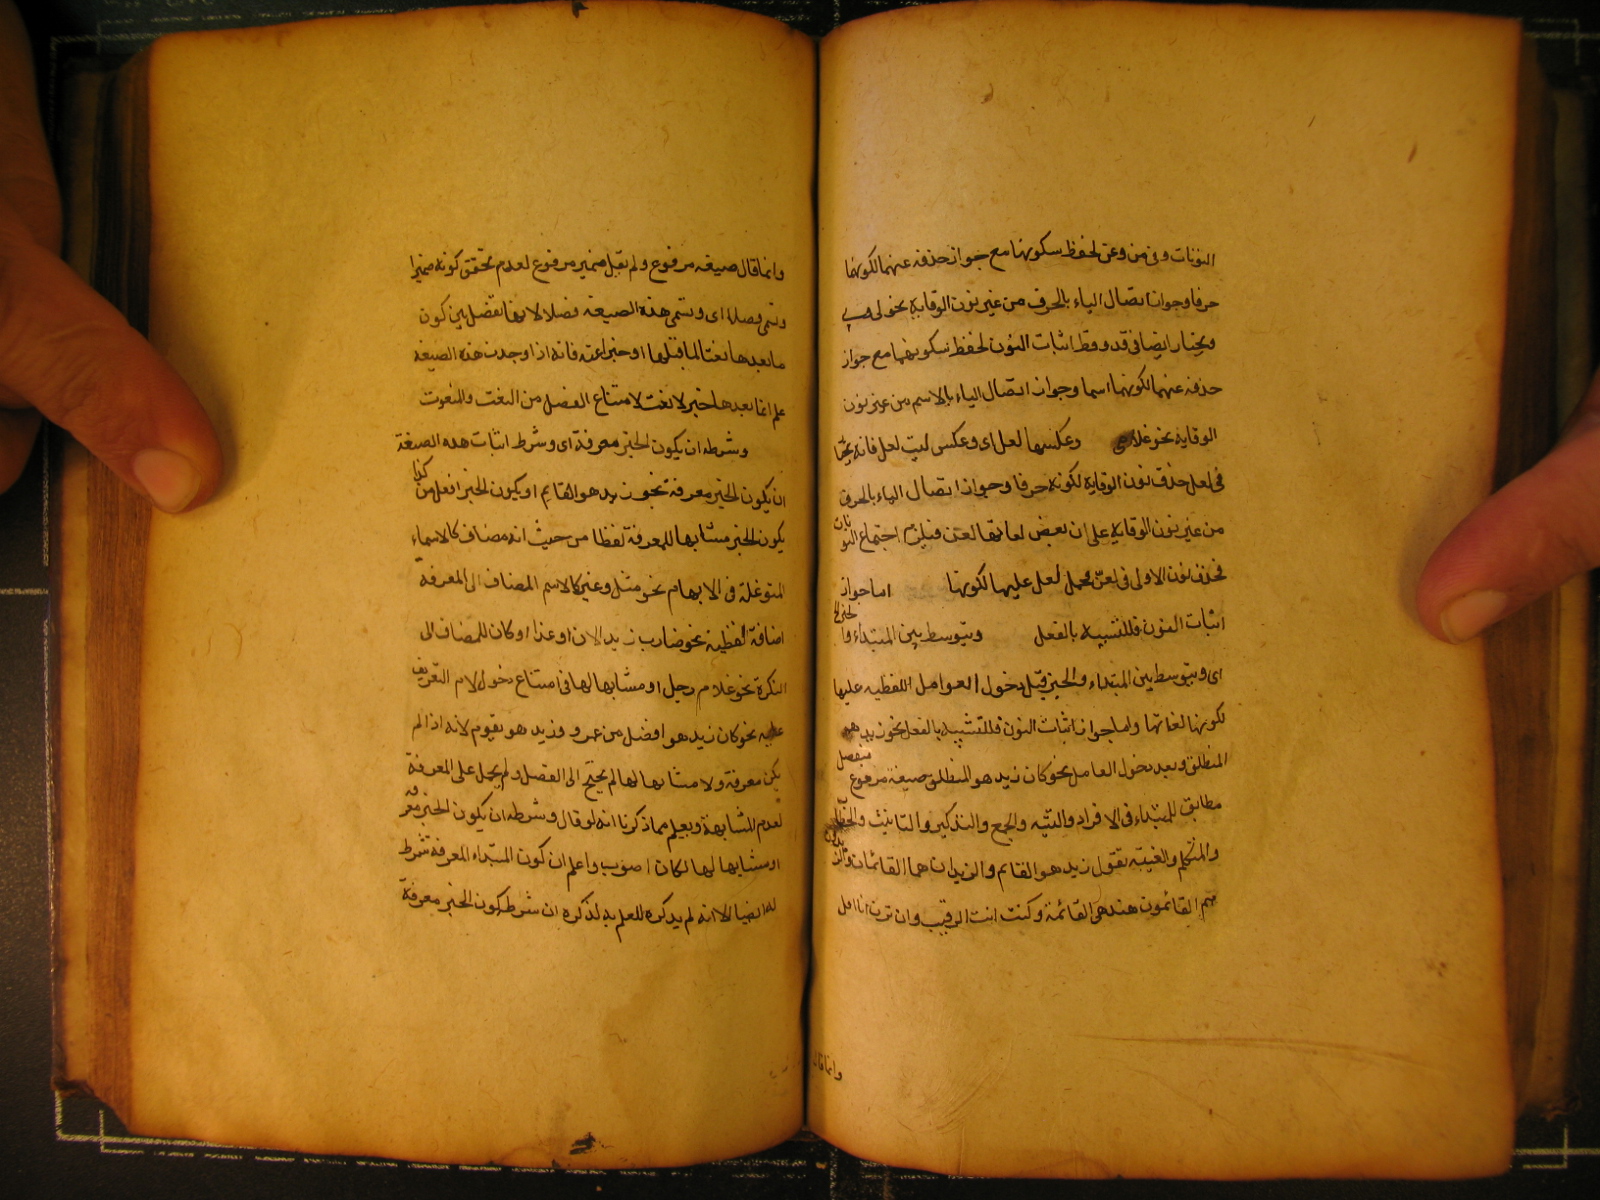 النونات وفى من وعن لحفظ سكونها مع جواز حذفه عنهما لكونهما
حرفا وجواز اتصال الياء بالحرف من غير نون الوقاية نحو لى وبى
ويختار ايضا فى قد وقط اثبات النون لحفظ سكونهما مع جواز
حذفه عنهما لكونهما اسما وجواز اتصال الياء بالاسم من غير نون
الوقاية نحو غلامى وعكسها لعل اى وعكس ليت لعل فانه يختار
فى لعل حذف نون الوقاية لكونه حرفا وجواز اتصال الياء بالحرف
من غير نون الوقاية على ان بعض لغاتها لعن فيلزم اجتماع النونات
فحذف نون الاولى فى لعن فحمل لعل عليها لكونها اما جواز
اثبات النون فللتشبيه بالفعل ويتوسط بين المبتداء والخبر
اى ويتوسط بين المبتداء والخبر قبل دخول العوامل اللفظيه عليها
لكونها لغاتها واما جواز اثبات النون فللتشبيه بالفعل نحو زيد هو
المنطلق وبعد دخول العامل نحو كان زيد هو المنطلق صيغة مرفوع منفصل
مطابق للمبتداء فى الافراد والتثنيه والجمع والتذكير والتانيث والخطاب
والمتكلم والغيبة تقول زيد هو القايم والزيدان هما القائمان والزيدون
هم القائمون هند هى القائمة وكنت انت الرقيب وان ترن انا اقل
وانما قال
وانما قال صيغه مرفوع ولم يقل ضمير مرفوع لعدم تحقق كونه ضميرا
وتسمى فصلا اى وتسمى هذه الصيغة فصلا لانها تفصل بين كون
ما بعدها نعتا لما قبلها او خبرا عنه فانه اذا وجدت هذه الصيغه
علم انما بعدها خبر لا نعت لامتناع الفصل من النعت والمنعوت
وشرطه ان يكون الخبر معرفة اى وشرط اثبات هذه الصيغة
ان يكون الخبر معرفة نحو زيد هو القايم او يكون الخبر افعل من كذا
يكون الخبر مشابها للمعرفة لفظا من حيث انه مضاف كالاسماء
المتوغلة فى الابهام نحو مثل وغير كالاسم المضاف الى المعرفة
اضافة لفظية نحو ضارب زيد الان او غدا او كان للمضاف الى
النكرة نحو غلام رجل او مشابها لها فى امتناع دخول لام التعريف
عليه نحو كان زيد هو افضل من عمرو وزيد هو يقوم لانه اذا لم
يكن معرفة ولا مشابها لها لم يحتج الى الفصل ولم يحمل على المعرفة
لعدم المشابهة ويعلم مما ذكرنا انه لو قال وشرطه ان يكون الخبر معرفة
او مشابها لها لكان اصوب واعلم ان كون المبتداء المعرفة شرط
له ايضا الا انه لم يذكره للعلم به لذكره ان شرط كون الخبر معرفة